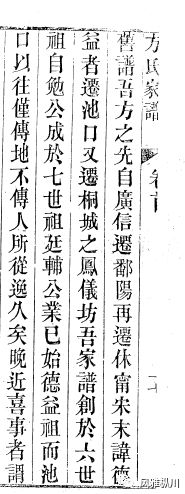 方氏家譜 卷首
舊譜吾方之先自廣信遷鄱陽再遷休甯宋末諱德
益者遷池口又遷桐城之鳳儀坊吾家譜創於六世
祖自勉公成於七世祖廷輔公業已始德益祖而池
口以往僅傳地不傳人所從逸久矣晚近喜事者謂
风雅枞川